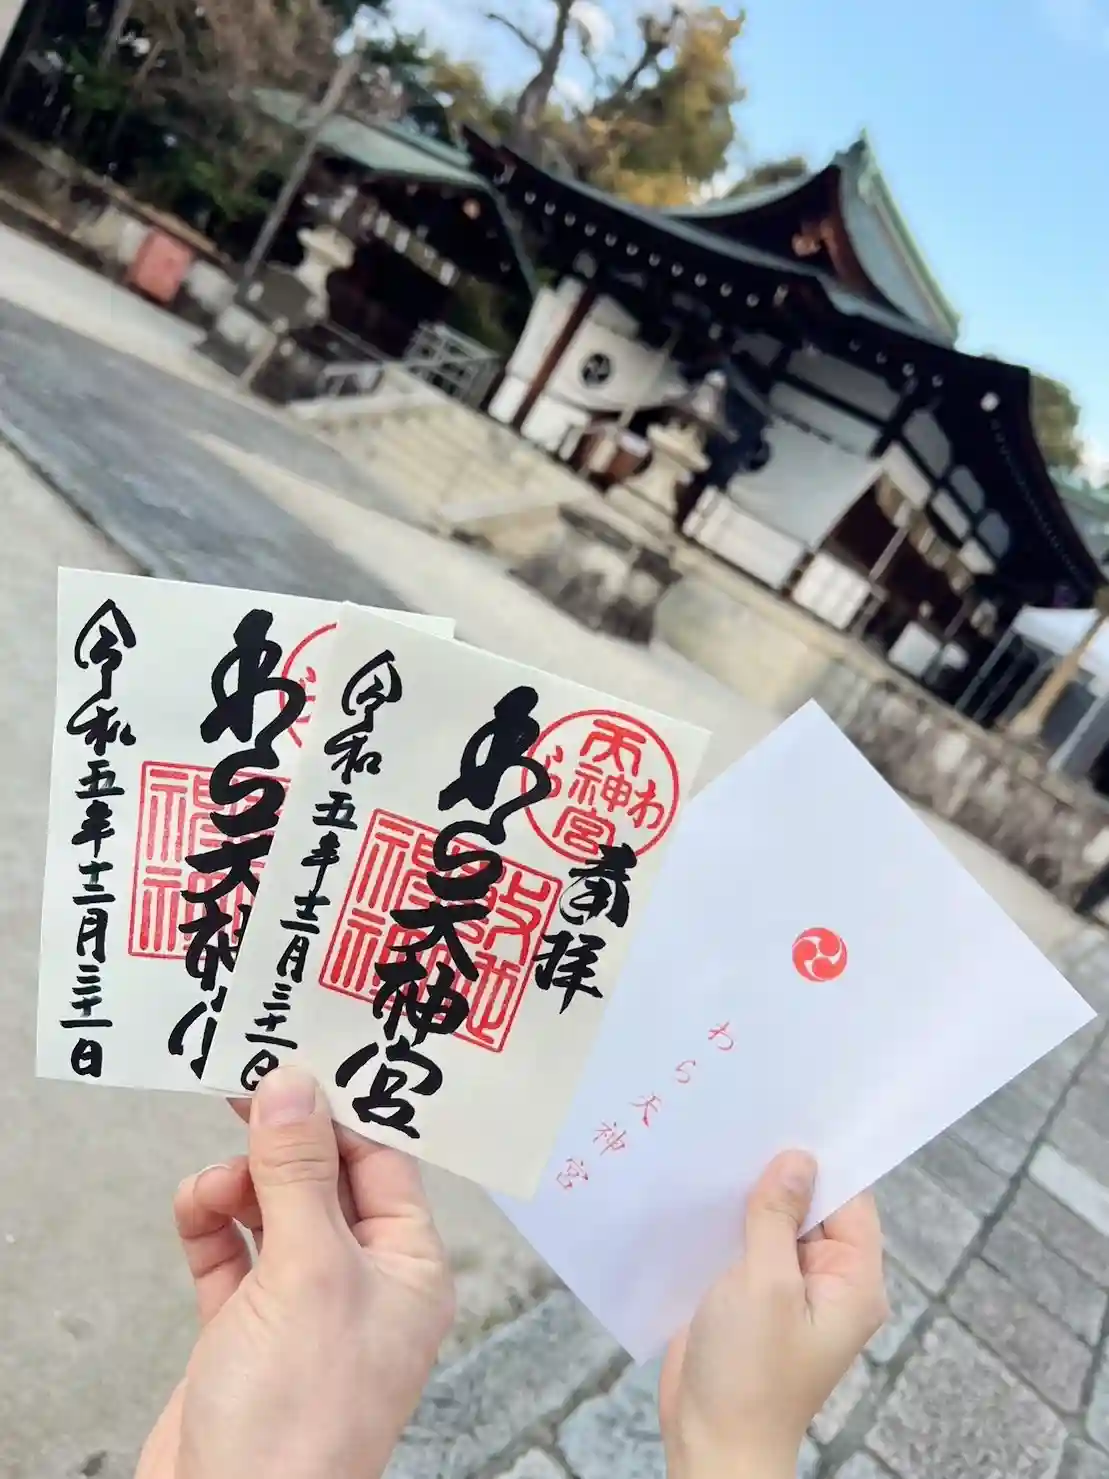 令和五年十二月三十一日
わら天神
令和五年十二月三十一日
わら天神宮
奉拝
わら天神宮
敷地
わら天神宮